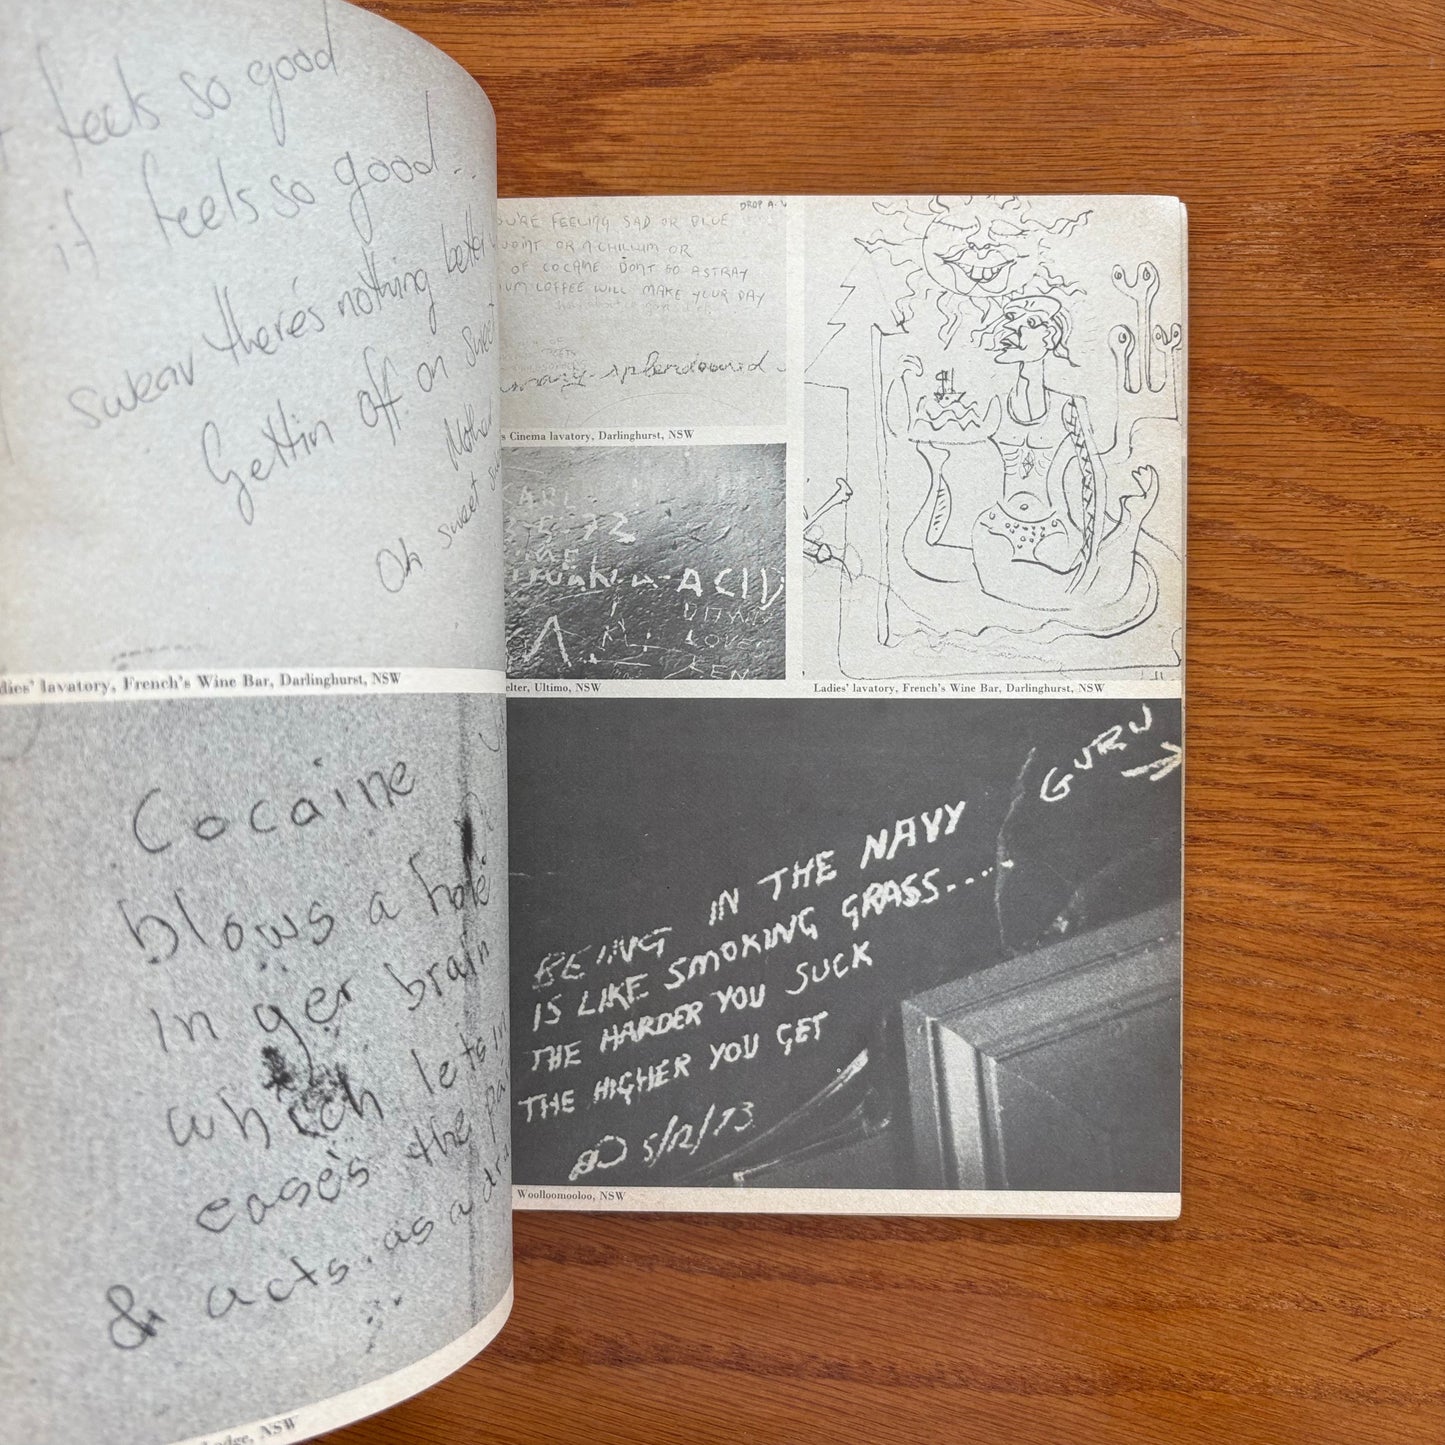 feels so good
it feels so good..
swear there's nothing better
Gettin off on sweet
Mother
Oh sweet
dies' lavatory, French's Wine Bar, Darlinghurst, NSW
Cocaine
blows a hole
in yer brain
which lets in
eases the
& acts. as a
odge, NSW
DROP A.
OU'RE FEELING SAD OR BLUE
JOINT OR A CHILLUM OR
OF COCAINE DONT GO ASTRAY
UM COFFEE WILL MAKE YOUR DAY
s Cinema lavatory, Darlinghurst, NSW
KARL
72
ACID
LOVE
KEN
elter, Ultimo, NSW
Ladies' lavatory, French's Wine Bar, Darlinghurst, NSW
GURU
BEING IN THE NAVY
IS LIKE SMOKING GRASS....
THE HARDER YOU SUCK
THE HIGHER YOU GET
5/12/73
Woolloomooloo, NSW